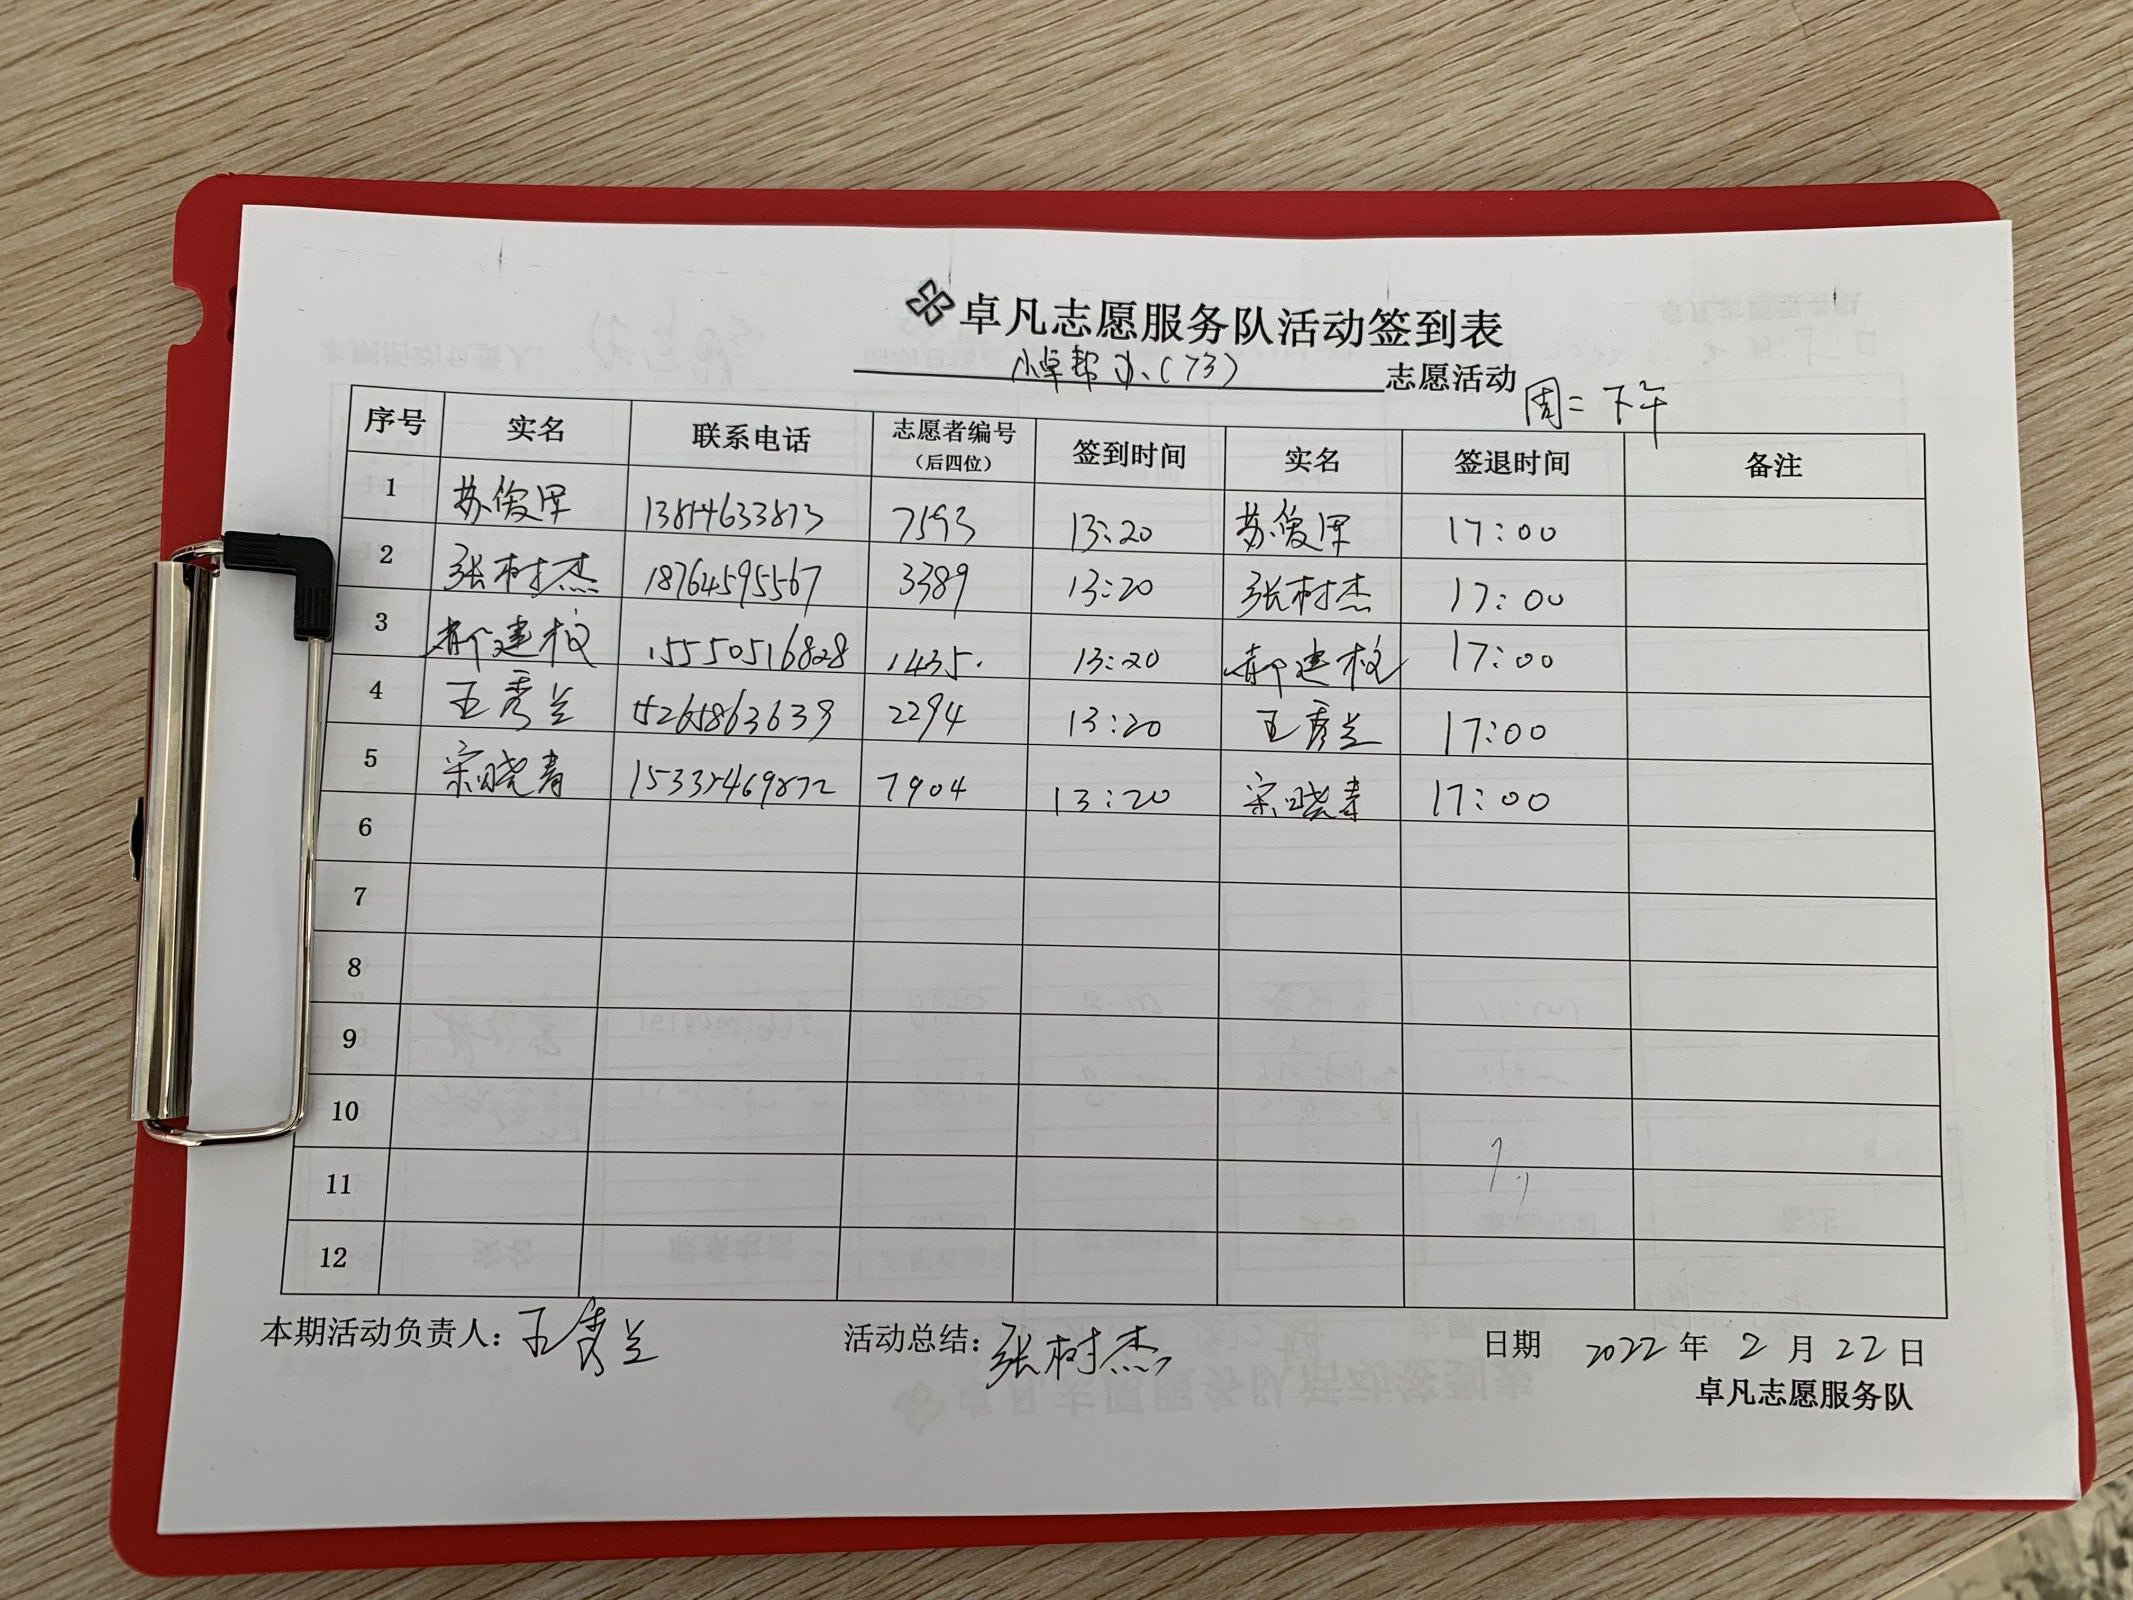 卓凡志愿服务队活动签到表
小卓帮办(73) 志愿活动 周二下午
序号 实名 联系电话 志愿者编号（后四位） 签到时间 实名 签退时间 备注
1 苏俊厚 7593 13:20 苏俊厚 17:00
2 张树杰 18764595567 3389 13:20 张树杰 17:00
3 郝建校 15550516828 1435. 13:20 郝建校 17:00
4 王秀兰 15265863639 2294 13:20 王秀兰 17:00
5 宋晓青 7904 13:20 宋晓青 17:00
6
7
8
9
10
11
12
本期活动负责人：王秀兰 活动总结：张树杰 日期 2022 年 2 月 22 日
卓凡志愿服务队